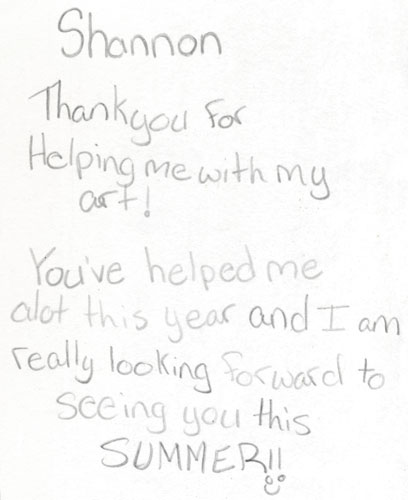 Shannon
Thankyou for
Helping me with my
art!
You've helped me
alot this year and I am
really looking forward to
seeing you this
SUMMER!!